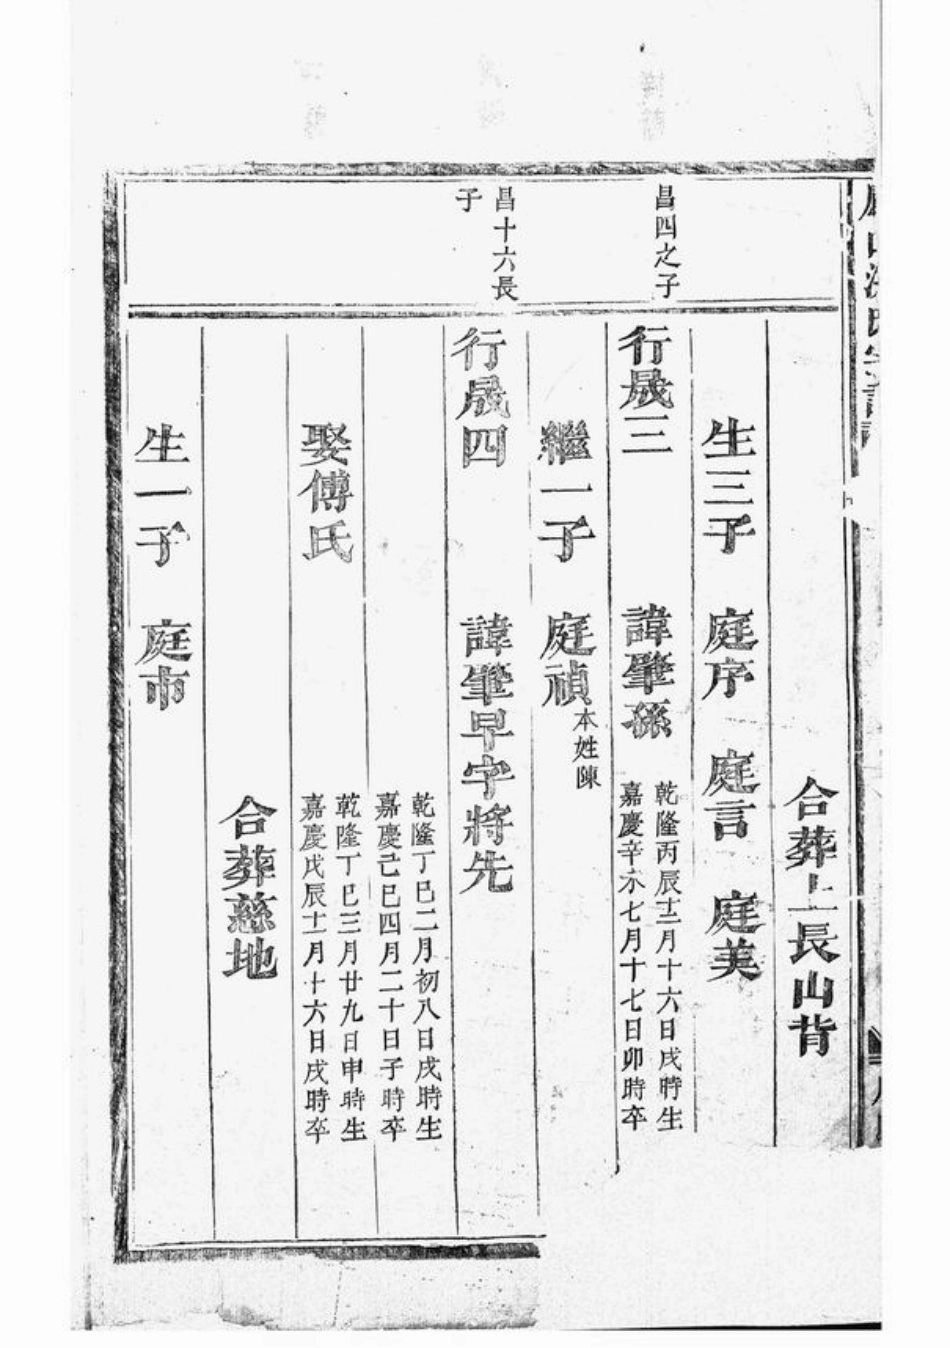 合葬上長山背
生三子　庭序　庭言　庭美
昌四之子
行晟三　諱肇孫
乾隆丙辰十二月十六日戌時生
嘉慶辛未七月十七日卯時卒
繼一子　庭禎
本姓陳
昌十六長
子
行晟四　諱肇早字將先
乾隆丁巳二月初八日戌時生
嘉慶己巳四月二十日子時卒
娶傅氏
乾隆丁巳三月廿九日申時生
嘉慶戊辰十一月十六日戌時卒
合葬慈地
生一子　庭市